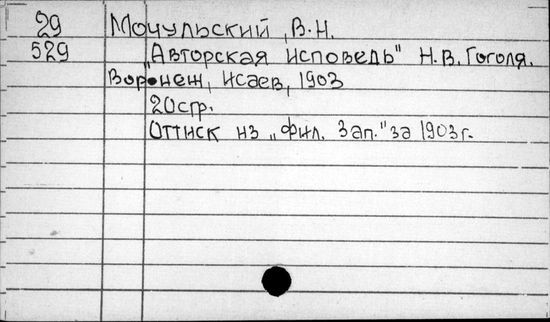 29 Мочульский, В.Н.
529 „Авторская исповедь" Н.В. Гоголя.
Воронеж, Исаев, 1903
20стр.
Оттиск из „Фил. Зап." за 1903г.